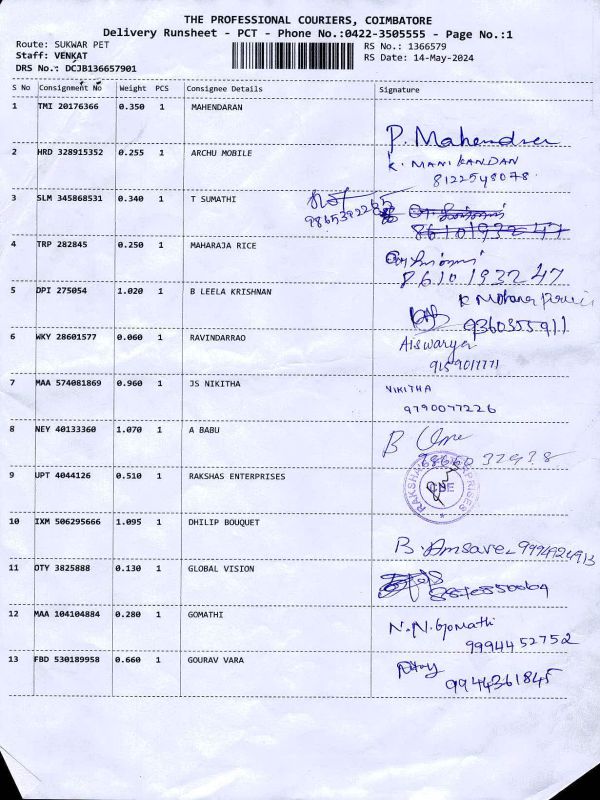 THE PROFESSIONAL COURIERS, COIMBATORE
Delivery Runsheet - PCT - Phone No.:0422-3505555 - Page No.:1
Route: SUKWAR PET
RS No.: 1366579
Staff: VENKAT
RS Date: 14-May-2024
DRS No.: DCJB136657901
S No Consignment No Weight PCS Consignee Details Signature
1 TMI 20176366 0.350 1 MAHENDARAN
P. Mahendran
2 HRD 328915352 0.255 1 ARCHU MOBILE
K. MANIKANDAN
8122548078
3 SLM 345868531 0.340 1 T SUMATHI
9865392285
8610193247
4 TRP 282845 0.250 1 MAHARAJA RICE
8610193247
5 DPI 275054 1.020 1 B LEELA KRISHNAN
K Mohana
9360355911
6 WKY 28601577 0.060 1 RAVINDARRAO
Aiswarya
9159017771
7 MAA 574081869 0.960 1 JS NIKITHA
NIKITHA
9790077226
8 NEY 40133360 1.070 1 A BABU
B Ume
32938
9 UPT 4044126 0.510 1 RAKSHAS ENTERPRISES
RAKSHAS ENTERPRISES
CBE
10 IXM 506295666 1.095 1 DHILIP BOUQUET
B. Amsave 9994924913
11 OTY 3825888 0.130 1 GLOBAL VISION
12 MAA 104104884 0.280 1 GOMATHI
N.N. Gomathi
9994452752
13 FBD 530189958 0.660 1 GOURAV VARA
9944361845